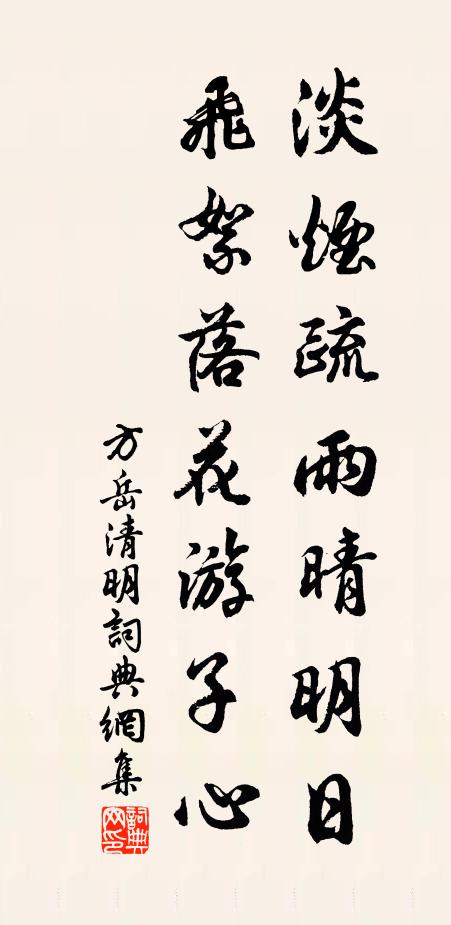 淡煙疏雨晴明日
飛絮落花游子心
方岳清明詞典網集
詞典網印